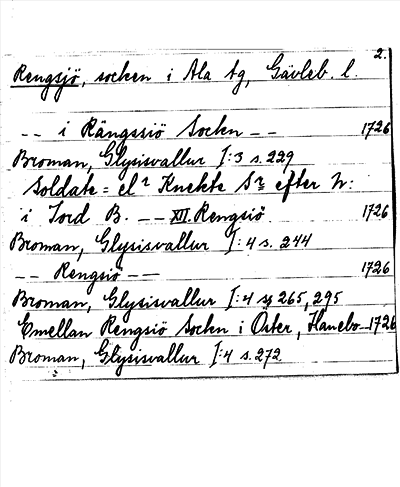 2.
Rengsjö, socken i Ala tg, Gävleb. l.
-- i Rängssiö Socken -- 1726
Broman, Glysisvallur I:3 s. 229
Soldate= elr Knekte Srr efter N:
i Jord B. -- XII. Rengsiö. 1726
Broman, Glysisvallur I:4 s. 244
-- Rengsiö -- 1726
Broman, Glysisvallur I:4 ss 265, 295
Emellan Rengsiö Socken i Öster, Hanebo- 1726
Broman, Glysisvallur I:4 s. 272